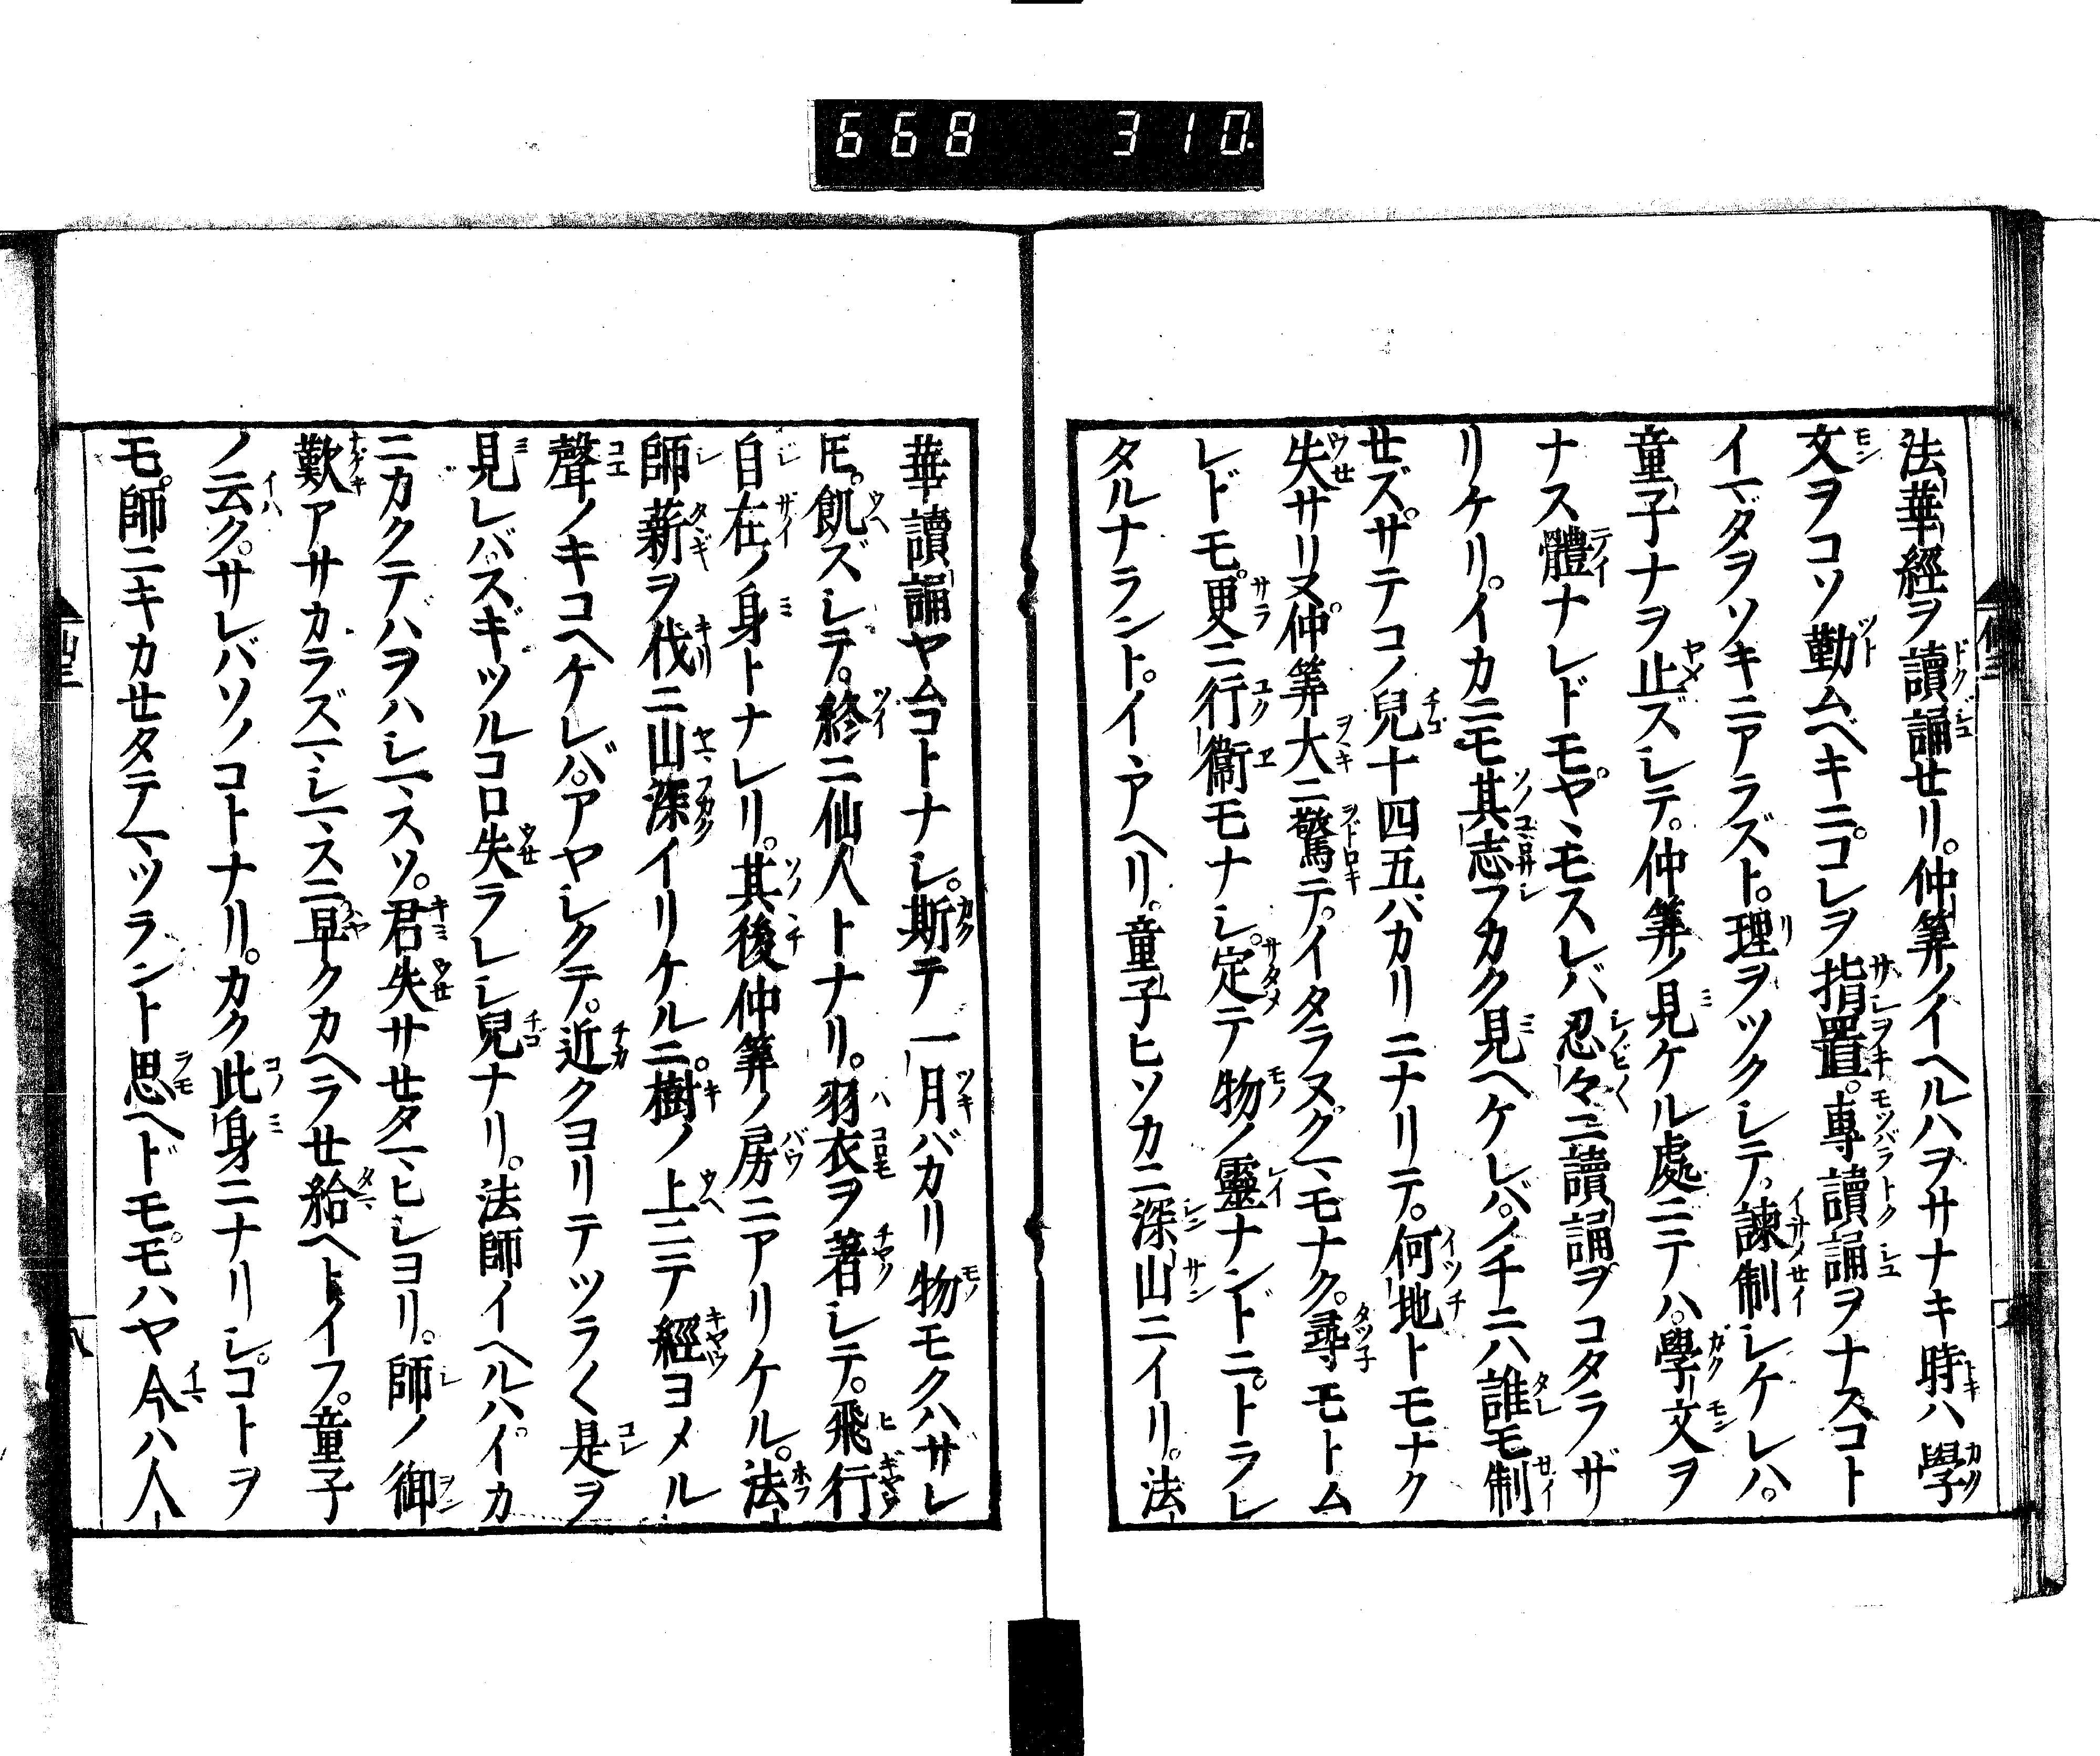 668 310
法華經ヲ讀誦セリ。仲筭ノイヘルハヲサナキ時ハ學
文ヲコソ勤ムベキニ。コレヲ指置。專讀誦ヲナスコト
イマダヲソキニアラズト。理ヲツクシテ。諫制シケレハ。
童子ナヲ止ズシテ。仲筭ノ見ケル處ニテハ。學文ヲ
ナス體ナレドモ。ヤヽモスレバ忍々ニ讀誦ヲコタラザ
リケリ。イカニモ其志フカク見ヘケレバ。ノチニハ誰モ制
セズ。サテコノ兒十四五バカリニナリテ。何地トモナク
失サリヌ。仲筭大ニ驚テ。イタラヌグマモナク。尋モトム
レドモ。更ニ行衞モナシ。定テ物ノ靈ナンドニ。トラレ
タルナラント。イヽアヘリ。童子ヒソカニ深山ニイリ。法
華讀誦ヤムコトナシ。斯テ一月バカリ物モクハザレ
𪜈。飢ズシテ。終ニ仙人トナリ。羽衣ヲ著シテ。飛行
自在ノ身トナレリ。其後仲筭ノ房ニアリケル。法
師薪ヲ伐ニ山深イリケルニ。樹ノ上ニテ經ヨメル
聲ノキコヘケレバ。アヤシクテ。近クヨリテツラ〱是ヲ
見レバ。スギツルコロ失ラレシ兒ナリ。法師イヘルハ。イカ
ニカクテハヲハシマスソ。君失サセタマヒシヨリ。師ノ御
歎アサカラズマシマスニ早クカヘラセ給ヘトイフ。童子
ノ云ク。サレバソノコトナリ。カク此身ニナリシコトヲ
モ。師ニキカセタテマツラント思ヘドモ。モハヤ今ハ人